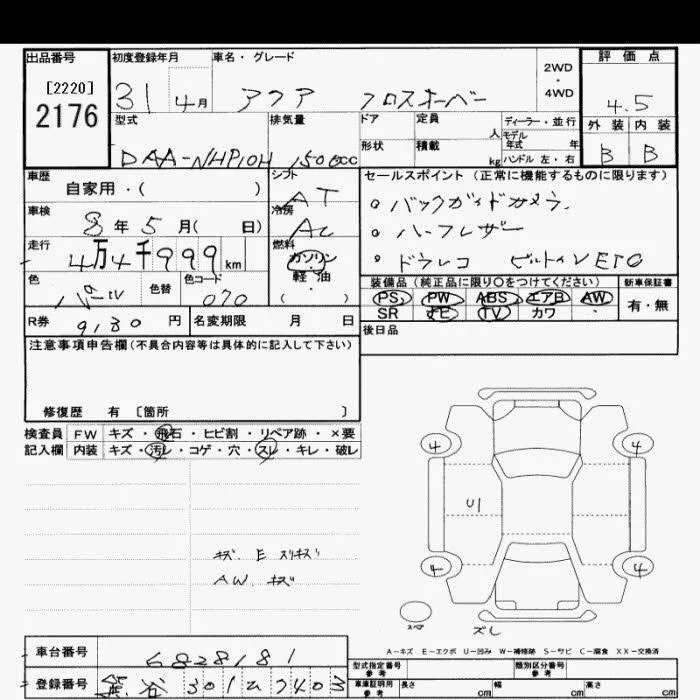 出品番号 初度登録年月 車名・グレード 2WD・4WD 評価点
[2220]
2176
31 4月 アクア クロスオーバー 4.5
型式 排気量 ドア 定員 人 ディーラー・並行 外装 内装
形状 積載 kg モデル年式 年
ハンドル 左・右
DAA-NHP10H 1500cc B B
車歴 自家用・( ) シフト AT
セールスポイント(正常に機能するものに限ります)
車検 8年5月( 日) 冷房 AC
。バックガイドカメラ
。ハーフレザー
。ドラレコ ビルトインETC
走行 4万4千999km 燃料 ガソリン・軽・油 ( )
色 パール 色替 色コード 070
装備品(純正品に限り○をつけてください) 新車保証書
PS PW ABS エアB AW 有・無
SR ナビ TV カワ ・
R券 9130円 名変期限 月 日
後日品
注意事項申告欄(不具合内容等は具体的に記入して下さい)
修復歴 有 〔箇所 〕
検査員 FW キズ・飛石・ヒビ割・リペア跡・×要
記入欄 内装 キズ・汚レ・コゲ・穴・スレ・キレ・破レ
4 4
U1
キズ E スリキズ
AW キズ
4 4
スペア
ズレ
A-キズ E-エクボ U-凹み W-補修跡 S-サビ C-腐食 XX-交換済
車台番号 6828181
型式指定番号 参考 類別区分番号 参考
登録番号 熊谷 301 7403
車庫証明用 参考 長さ cm 幅 cm 高さ cm